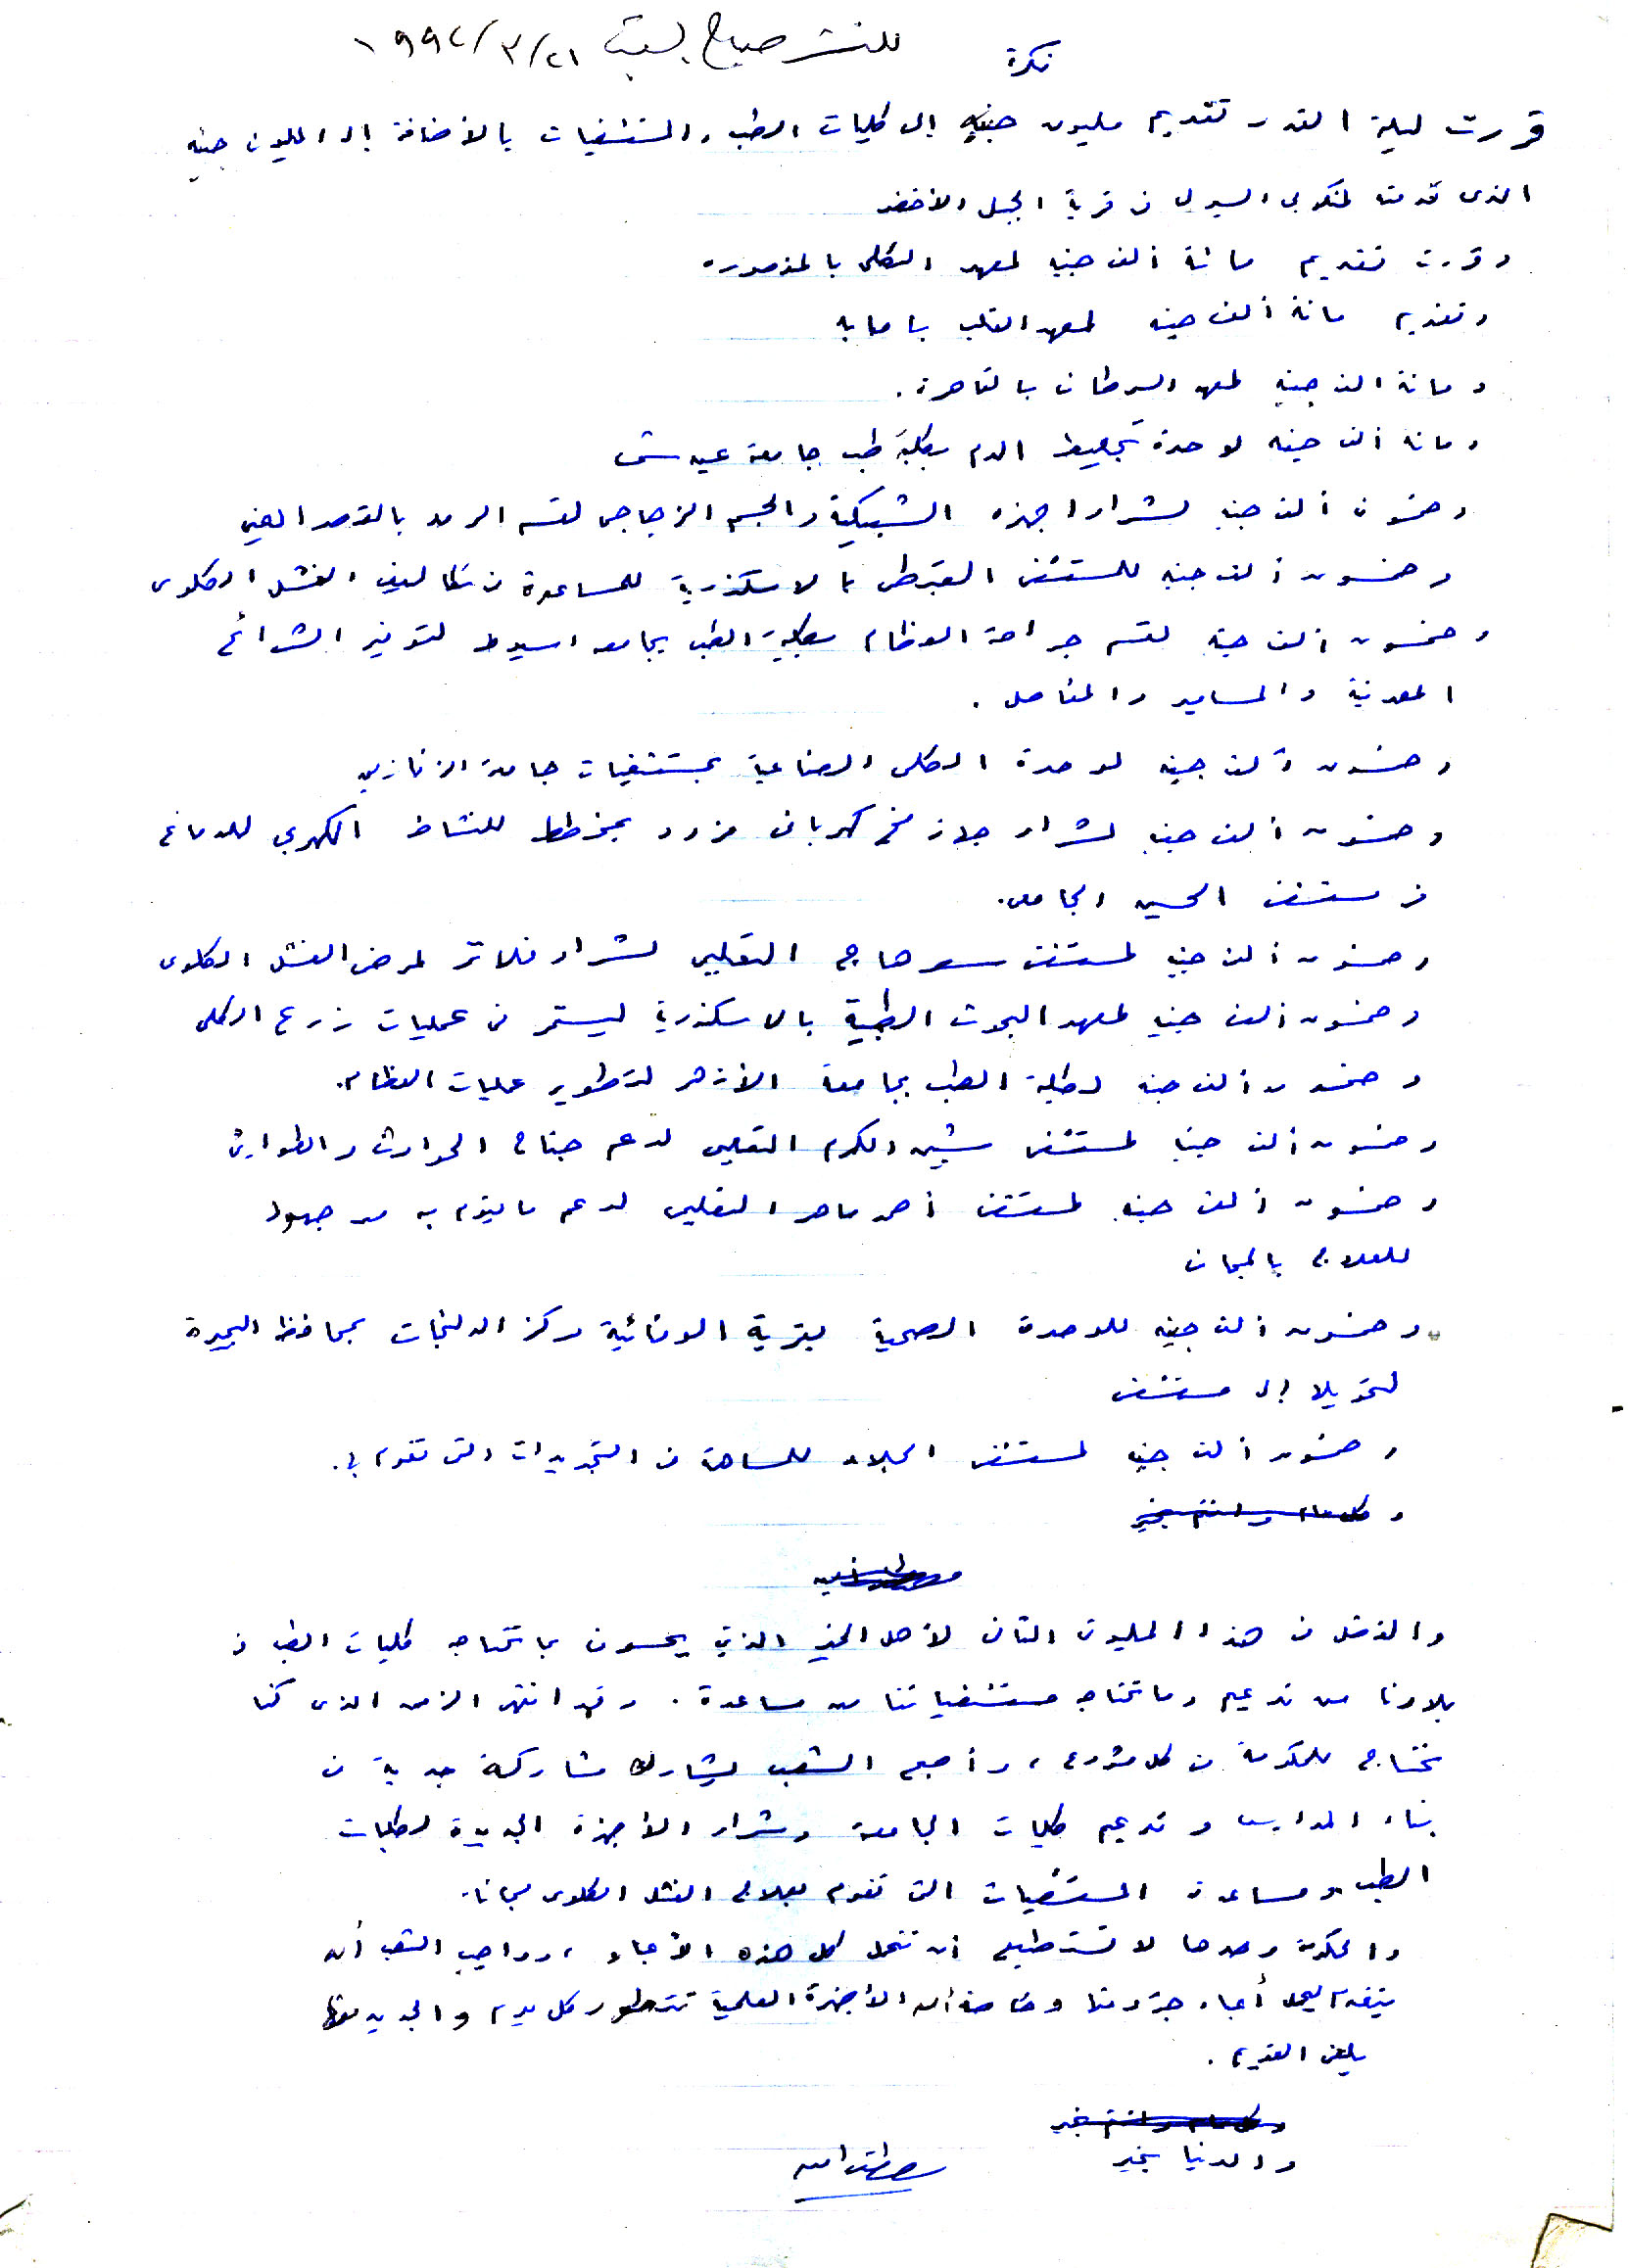 للنشر صباح السبت ١٩٩٢/٣/٢١
فكرة
قررت ليلة القدر تقديم مليون جنيه إلى كليات الطب والمستشفيات بالأضافة إلى المليون جنيه
الذى قدمته لمنكوبى السيول فى قرية الجبل الأخضر
وقررت تقديم مائة ألف جنيه لمعهد الكلى بالمنصوره
وتقديم مائة ألف جنيه لمعهد القلب بامبابه
ومائة الف جنيه لمعهد السرطان بالقاهرة.
ومائة ألف جنيه لوحدة تجليط الدم بكلية طب جامعة عين شمس
وخمسون ألف جنيه لشراء اجهزه الشبكية والجسم الزجاجى لقسم الرمد بالقصر العينى
وخمسون ألف جنيه للمستشفى القبطى بالاسكندرية للمساعدة فى تكاليف الفشل الكلوى
وخمسون ألف جنيه لقسم جراحة العظام بكلية الطب بجامعه اسيوط لتوفير الشرائح
المعدنية والمسامير والمفاصل.
وخمسون ألف جنيه لوحدة الكلى الصناعية بمستشفيات جامعة الزقازيق
وخمسون ألف جنيه لشراء جهاز مخ كهربائى مزود بمخطط للنشاط الكهربى للدماغ
فى مستشفى الحسين الجامعى.
وخمسون ألف جنيه لمستشفى سوهاج التعليمى لشراء فلاتر لمرضى الفشل الكلوى
وخمسون ألف جنيه لمعهد البحوث الطبية بالاسكندرية ليستمر فى عمليات زرع الكلى
وخمسون ألف جنيه لكلية الطب بجامعة الأزهر لتطوير عمليات العظام.
وخمسون ألف جنيه لمستشفى شبين الكوم التعليمى لدعم جناح الحوادث والطوارئ
وخمسون ألف جنيه لمستشفى أحمد ماهر التعليمى لدعم ما يقوم به من جهود
للعلاج بالمجان
وخمسون ألف جنيه للوحدة الصحية بقرية الوفائية مركز الدلنجات بمحافظة البحيرة
لتحويلها إلى مستشفى
وخمسون ألف جنيه لمستشفى الجلاء للمساهمة فى التجديدات التى تقوم بها.
وكل عام وانتم بخير
مصطفى أمين
والفضل فى هذا المليون الثانى لأهل الخير الذين يحسون بما تحتاجه كليات الطب فى
بلادنا من تدعيم وما تحتاجه مستشفياتنا من مساعدة. وقد انتهى الزمن الذى كنا
نحتاج للحكومة فى كل مشروع، وأصبح الشعب يشارك مشاركة جدية فى
بناء المدارس وتدعيم كليات الجامعة وشراء الأجهزة الجديدة لكليات
الطب ومساعدة المستشفيات التى تقوم بعلاج الفشل الكلوى مجانا.
والحكومة وحدها لا تستطيع أن تتحمل كل هذه الأعباء، وواجب الشعب أن
يتقدم ليحمل أعباء وخاصة أن الأجهزة العلمية تتطور كل يوم والجديد منها
يلغى القديم.
وكل عام وانتم بخير
والدنيا بخير
مصطفى أمين